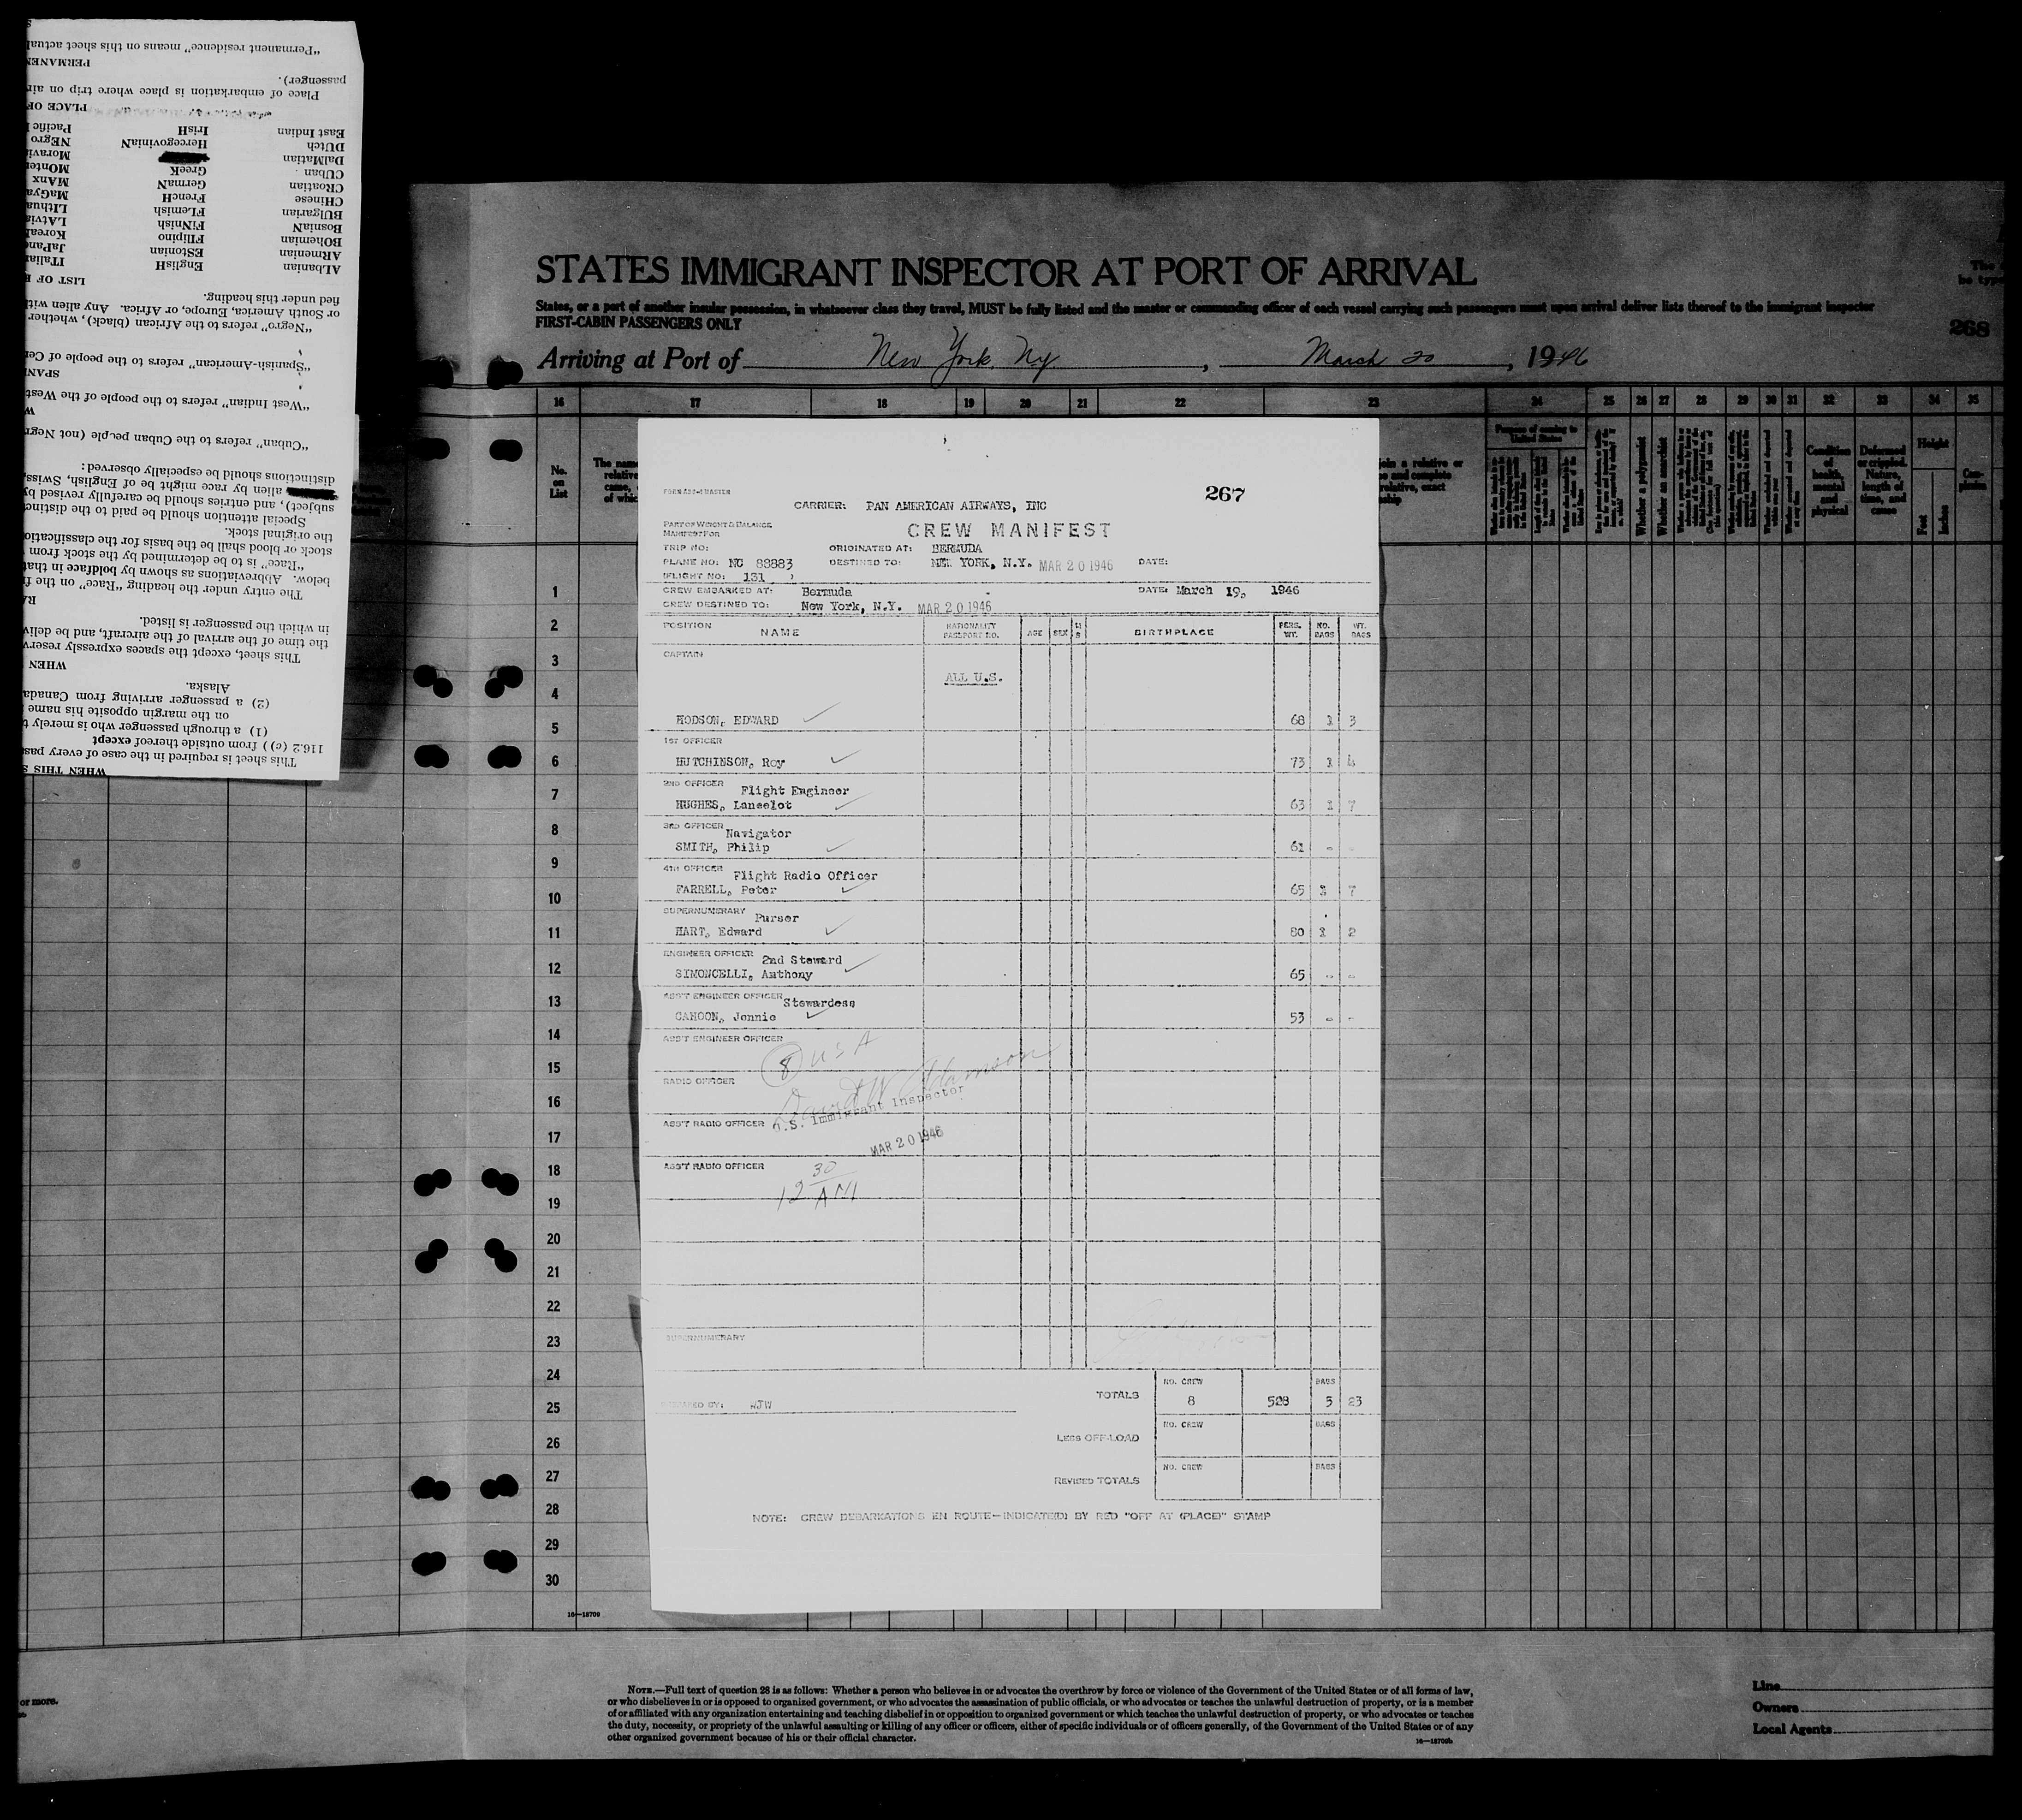 "Permanent residence" means on this sheet actual
PERMANEN
passenger).
Place of embarkation is place where trip on air
PLACE OF
East Indian IrisH Pacific
DUtch HercegoviniaN NEgro
DalMatian Moravi
CUban GreeK MOnten
CRoatian GermaN MAnx
CHinese FrencH MaGya
BUlgarian FLemish LIthua
BosniaN FiNnish LAtvia
BOhemian FIlipino Korea
ARmenian EStonian JaPane
ALbanian EnglisH ITalia
LIST OF
fied under this heading.
or South America, Europe, or Africa. Any alien with
"Negro" refers to the African (black), whether
"Spanish-American" refers to the people of Cen
SPANI
"West Indian" refers to the people of the West
W
"Cuban" refers to the Cuban people (not Negr
distinctions should be especially observed:
alien by race might be of English, Swiss,
subject), and entries should be carefully revised by
Special attention should be paid to the distinc
the original stock.
stock or blood shall be the basis for the classification
"Race" is to be determined by the stock from
below. Abbreviations as shown by boldface in that
The entry under the heading "Race" on the f
RA
in which the passenger is listed.
the time of the arrival of the aircraft, and be deliv
This sheet, except the spaces expressly reserv
WHEN
Alaska.
(2) a passenger arriving from Canada
on the margin opposite his name
(1) a through passenger who is merely t
116.2 (c)) from outside thereof except
This sheet is required in the case of every pas
WHEN THIS S
STATES IMMIGRANT INSPECTOR AT PORT OF ARRIVAL
States, or a part of another insular possession, in whatsoever class they travel, MUST be fully listed and the master or commanding officer of each vessel carrying such passengers must upon arrival deliver lists thereof to the immigrant inspector
FIRST-CABIN PASSENGERS ONLY
268
Arriving at Port of New York, Ny, March 20, 1946
16 17 18 19 20 21 22 23 24 25 26 27 28 29 30 31 32 33 34 35
No. on List
Purpose of coming to United States
Whether a polygamist
Whether an anarchist
Condition of health, mental and physical
Deformed or crippled. Nature, length of time, and cause
Height
Feet
Inches
FORM 432-1 MASTER
267
CARRIER: PAN AMERICAN AIRWAYS, INC
PART OF WEIGHT & BALANCE
MANIFEST FOR
CREW MANIFEST
TRIP NO: ORIGINATED AT: BERMUDA
PLANE NO: NC 88883 DESTINED TO: NEW YORK, N.Y. MAR 20 1946 DATE:
FLIGHT NO: 131
CREW EMBARKED AT: Bermuda DATE: March 19, 1946
CREW DESTINED TO: New York, N.Y. MAR 20 1946
POSITION NAME NATIONALITY PASSPORT NO. AGE SEX BIRTHPLACE PERS. WT. NO. BAGS WT. BAGS
CAPTAIN
ALL U.S.
HODSON, EDWARD 68 1 3
1ST OFFICER
HUTCHINSON, Roy 73 1 4
2ND OFFICER Flight Engineer
HUGHES, Lancelot 63 1 7
3RD OFFICER Navigator
SMITH, Philip 61 - -
4TH OFFICER Flight Radio Officer
FARRELL, Peter 65 1 7
SUPERNUMERARY Purser
HART, Edward 80 1 2
ENGINEER OFFICER 2nd Steward
SIMONCELLI, Anthony 65 - -
ASS'T ENGINEER OFFICER Stewardess
CAHOON, Jennie 53 - -
ASS'T ENGINEER OFFICER
8 USA
RADIO OFFICER
David W Adamson
U.S. Immigrant Inspector
ASS'T RADIO OFFICER
MAR 20 1946
ASS'T RADIO OFFICER
12 30 AM
SUPERNUMERARY
TOTALS NO. CREW 8 528 BAGS 5 23
PREPARED BY: WJW
LESS OFF-LOAD NO. CREW BAGS
REVISED TOTALS NO. CREW BAGS
NOTE: CREW DEBARKATIONS EN ROUTE—INDICATE(D) BY RED "OFF AT (PLACE)" STAMP
1
2
3
4
5
6
7
8
9
10
11
12
13
14
15
16
17
18
19
20
21
22
23
24
25
26
27
28
29
30
16—18709
or more.
NOTE.—Full text of question 28 is as follows: Whether a person who believes in or advocates the overthrow by force or violence of the Government of the United States or of all forms of law,
or who disbelieves in or is opposed to organized government, or who advocates the assassination of public officials, or who advocates or teaches the unlawful destruction of property, or is a member
of or affiliated with any organization entertaining and teaching disbelief in or opposition to organized government or which teaches the unlawful destruction of property, or who advocates or teaches
the duty, necessity, or propriety of the unlawful assaulting or killing of any officer or officers, either of specific individuals or of officers generally, of the Government of the United States or of any
other organized government because of his or their official character.
16—18709b
Line
Owners
Local Agents